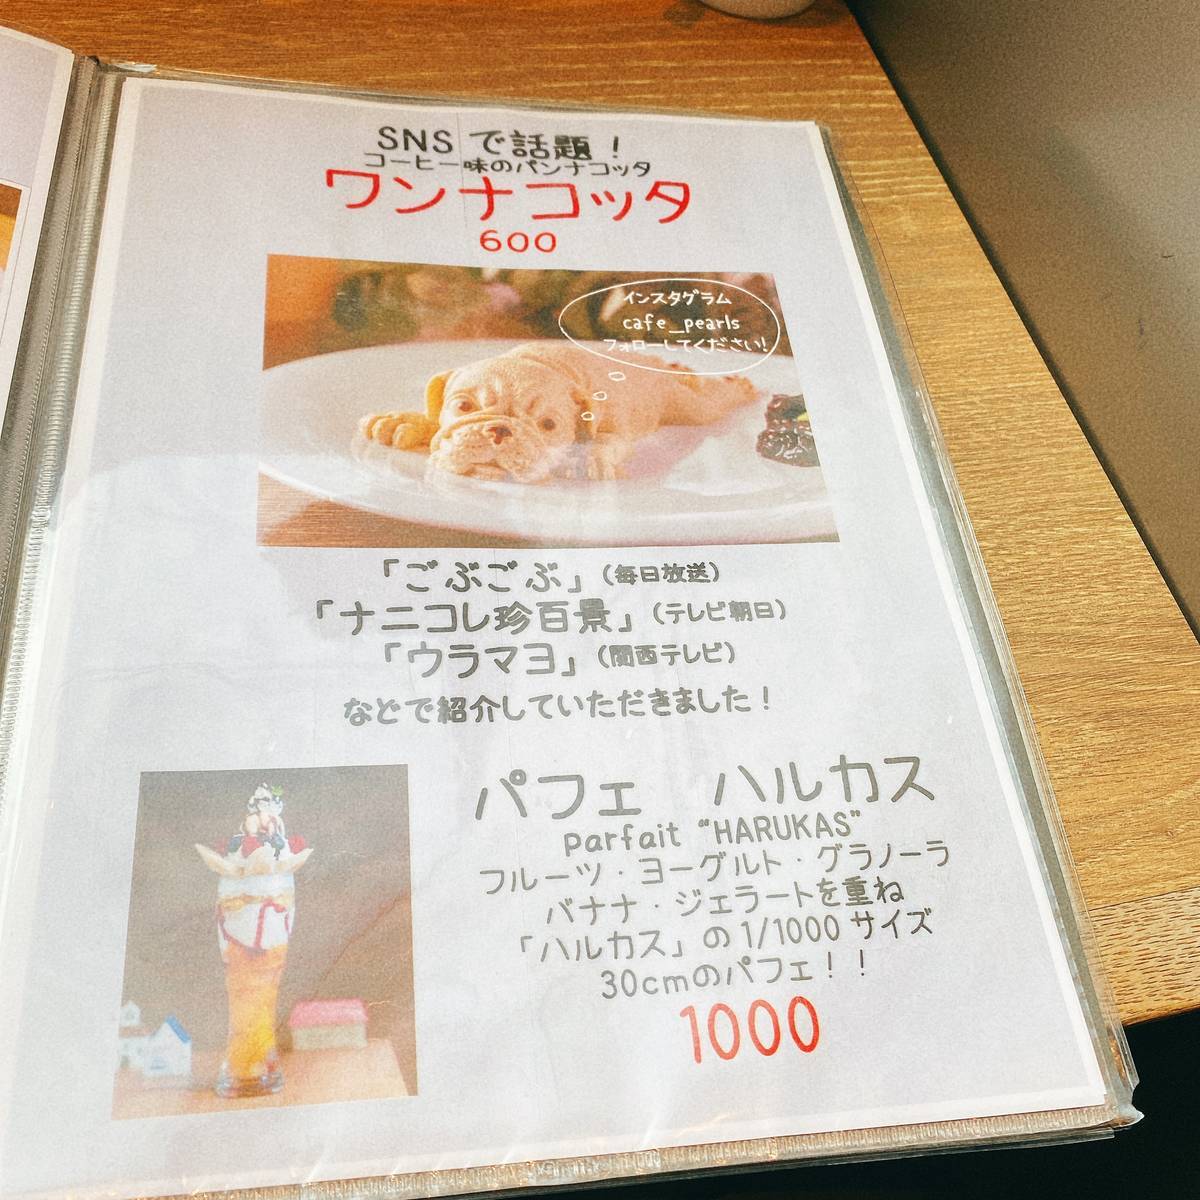 SNSで話題！
コーヒー味のパンナコッタ
ワンナコッタ
600
インスタグラム
cafe_pearls
フォローしてください!
「ごぶごぶ」（毎日放送）
「ナニコレ珍百景」（テレビ朝日）
「ウラマヨ」（関西テレビ）
などで紹介していただきました！
パフェ　ハルカス
parfait “HARUKAS”
フルーツ・ヨーグルト・グラノーラ
バナナ・ジェラートを重ね
「ハルカス」の1/1000サイズ
30cmのパフェ！！
1000